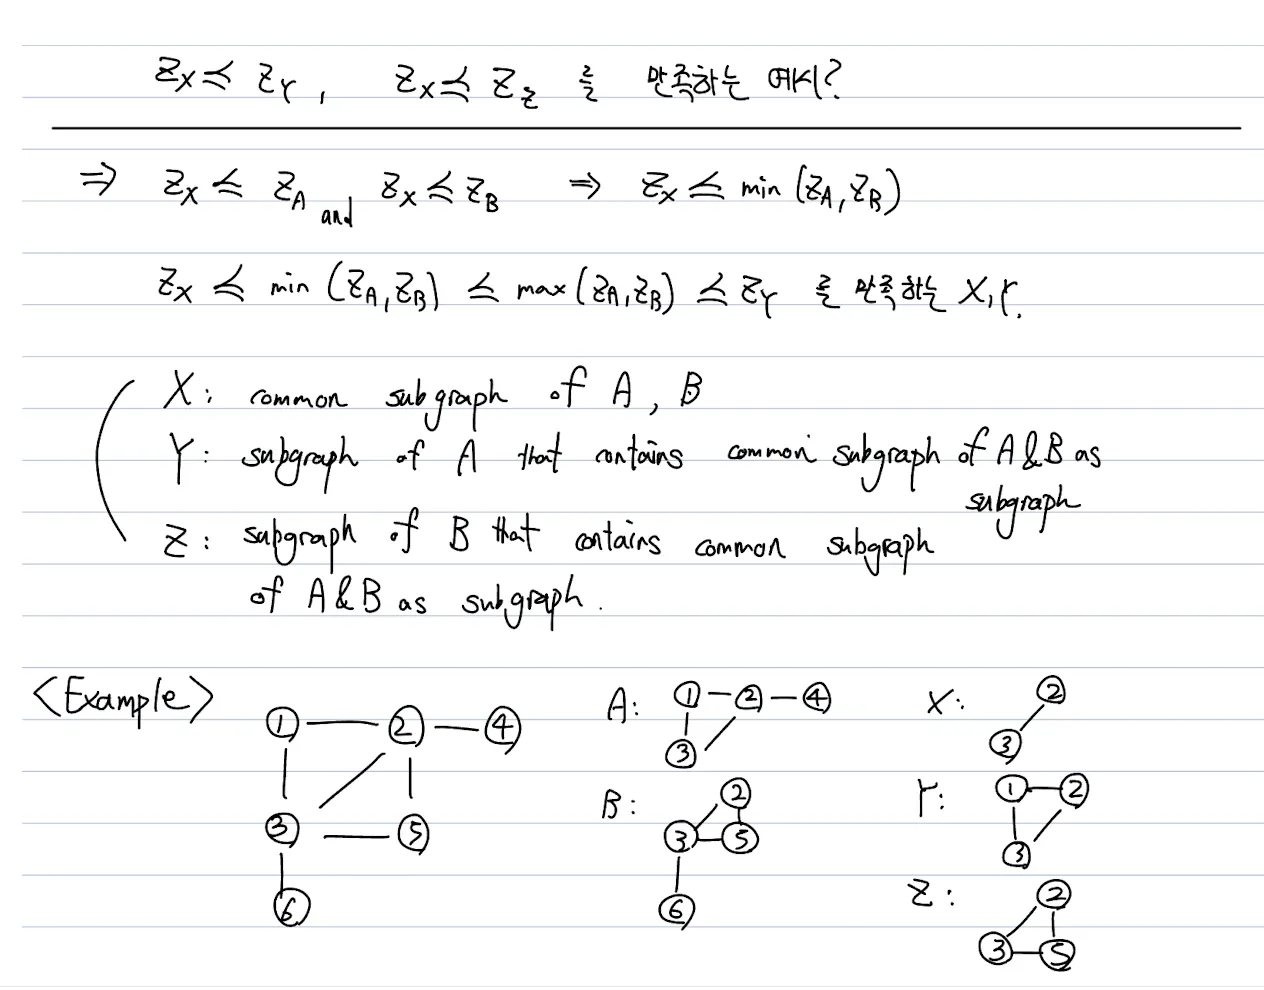 Z_X ≼ Z_Y, Z_X ≼ Z_Z 를 만족하는 예시?
⇒ Z_X ≼ Z_A and Z_X ≼ Z_B ⇒ Z_X ≼ min (Z_A, Z_B)
Z_X ≼ min (Z_A, Z_B) ≼ max (Z_A, Z_B) ≼ Z_Y 를 만족하는 X, Y.
X: common subgraph of A, B
Y: subgraph of A that contains common subgraph of A & B as
subgraph
Z: subgraph of B that contains common subgraph
of A & B as subgraph.
<Example>
1 2 4
3 5
6
A: 1 2 4
3
B: 2
3 5
6
X: 2
3
Y: 1 2
3
Z: 2
3 5